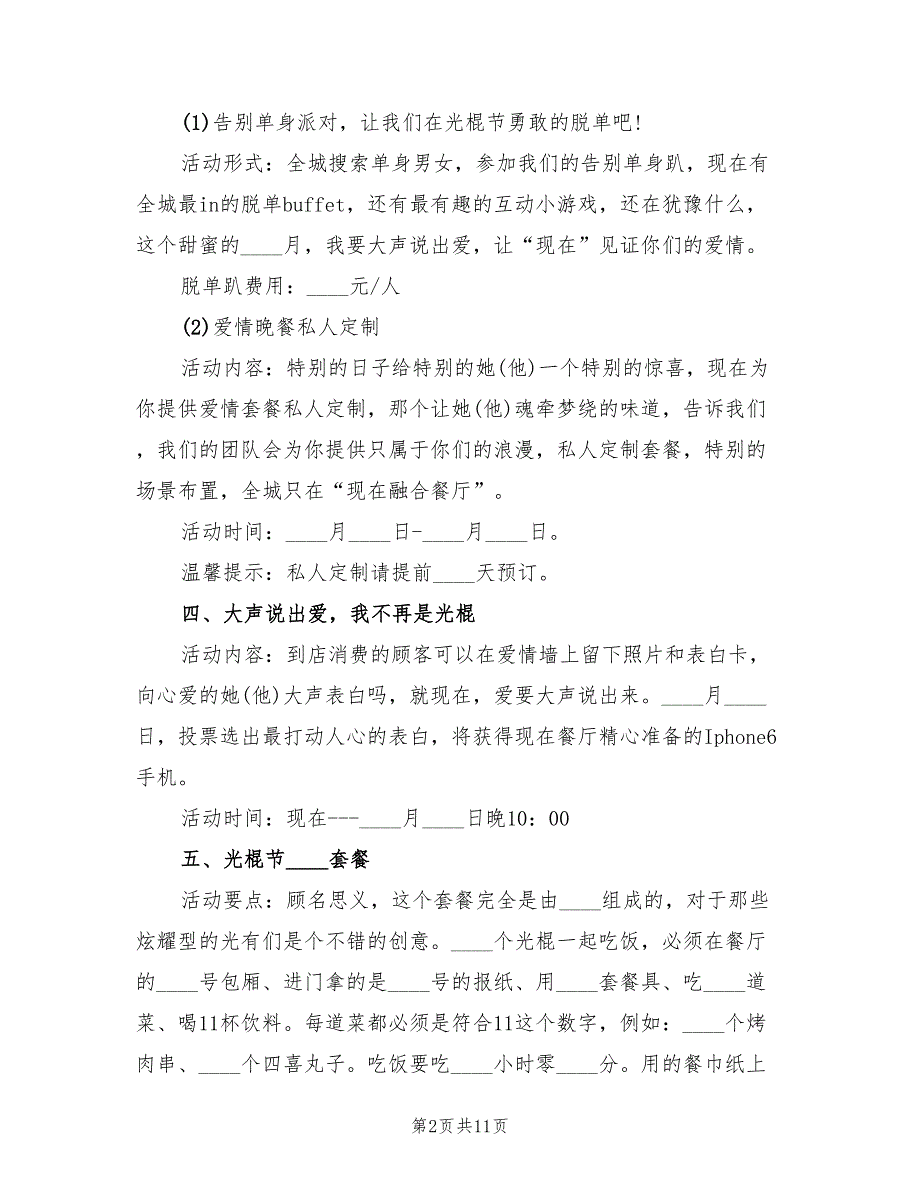 (1)告别单身派对，让我们在光棍节勇敢的脱单吧!
活动形式：全城搜索单身男女，参加我们的告别单身趴，现在有
全城最in的脱单buffet，还有最有趣的互动小游戏，还在犹豫什么，
这个甜蜜的____月，我要大声说出爱，让“现在”见证你们的爱情。
脱单趴费用：____元/人
(2)爱情晚餐私人定制
活动内容：特别的日子给特别的她(他)一个特别的惊喜，现在为
你提供爱情套餐私人定制，那个让她(他)魂牵梦绕的味道，告诉我们
，我们的团队会为你提供只属于你们的浪漫，私人定制套餐，特别的
场景布置，全城只在“现在融合餐厅”。
活动时间：____月____日-____月____日。
温馨提示：私人定制请提前____天预订。
四、大声说出爱，我不再是光棍
活动内容：到店消费的顾客可以在爱情墙上留下照片和表白卡，
向心爱的她(他)大声表白吗，就现在，爱要大声说出来。____月____
日，投票选出最打动人心的表白，将获得现在餐厅精心准备的Iphone6
手机。
活动时间：现在---____月____日晚10：00
五、光棍节____套餐
活动要点：顾名思义，这个套餐完全是由____组成的，对于那些
炫耀型的光有们是个不错的创意。____个光棍一起吃饭，必须在餐厅
的____号包厢、进门拿的是____号的报纸、用____套餐具、吃____道
菜、喝11杯饮料。每道菜都必须是符合11这个数字，例如：____个烤
肉串、____个四喜丸子。吃饭要吃____小时零____分。用的餐巾纸上
第2页共11页